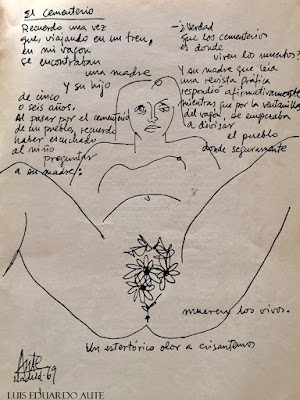 El Cementerio
Recuerdo una vez
que, viajando en un tren,
en mi vagon
se encontraban
una madre
y su hijo
de cinco
o seis años.
Al pasar por el cementerio
de un pueblo, recuerdo
haber escuchado
al niño
preguntar
a su madre:
¿Verdad
que los cementerios
es donde
viven los muertos?
Y su madre que leía
una revista gráfica
respondió afirmativamente
mientras que por la ventanilla
del vagon, se empezaba
a divisar
el pueblo
donde seguramente
mueren los vivos.
Un estertórico olor a crisantemos
Aute
Madrid-69
LUIS EDUARDO AUTE